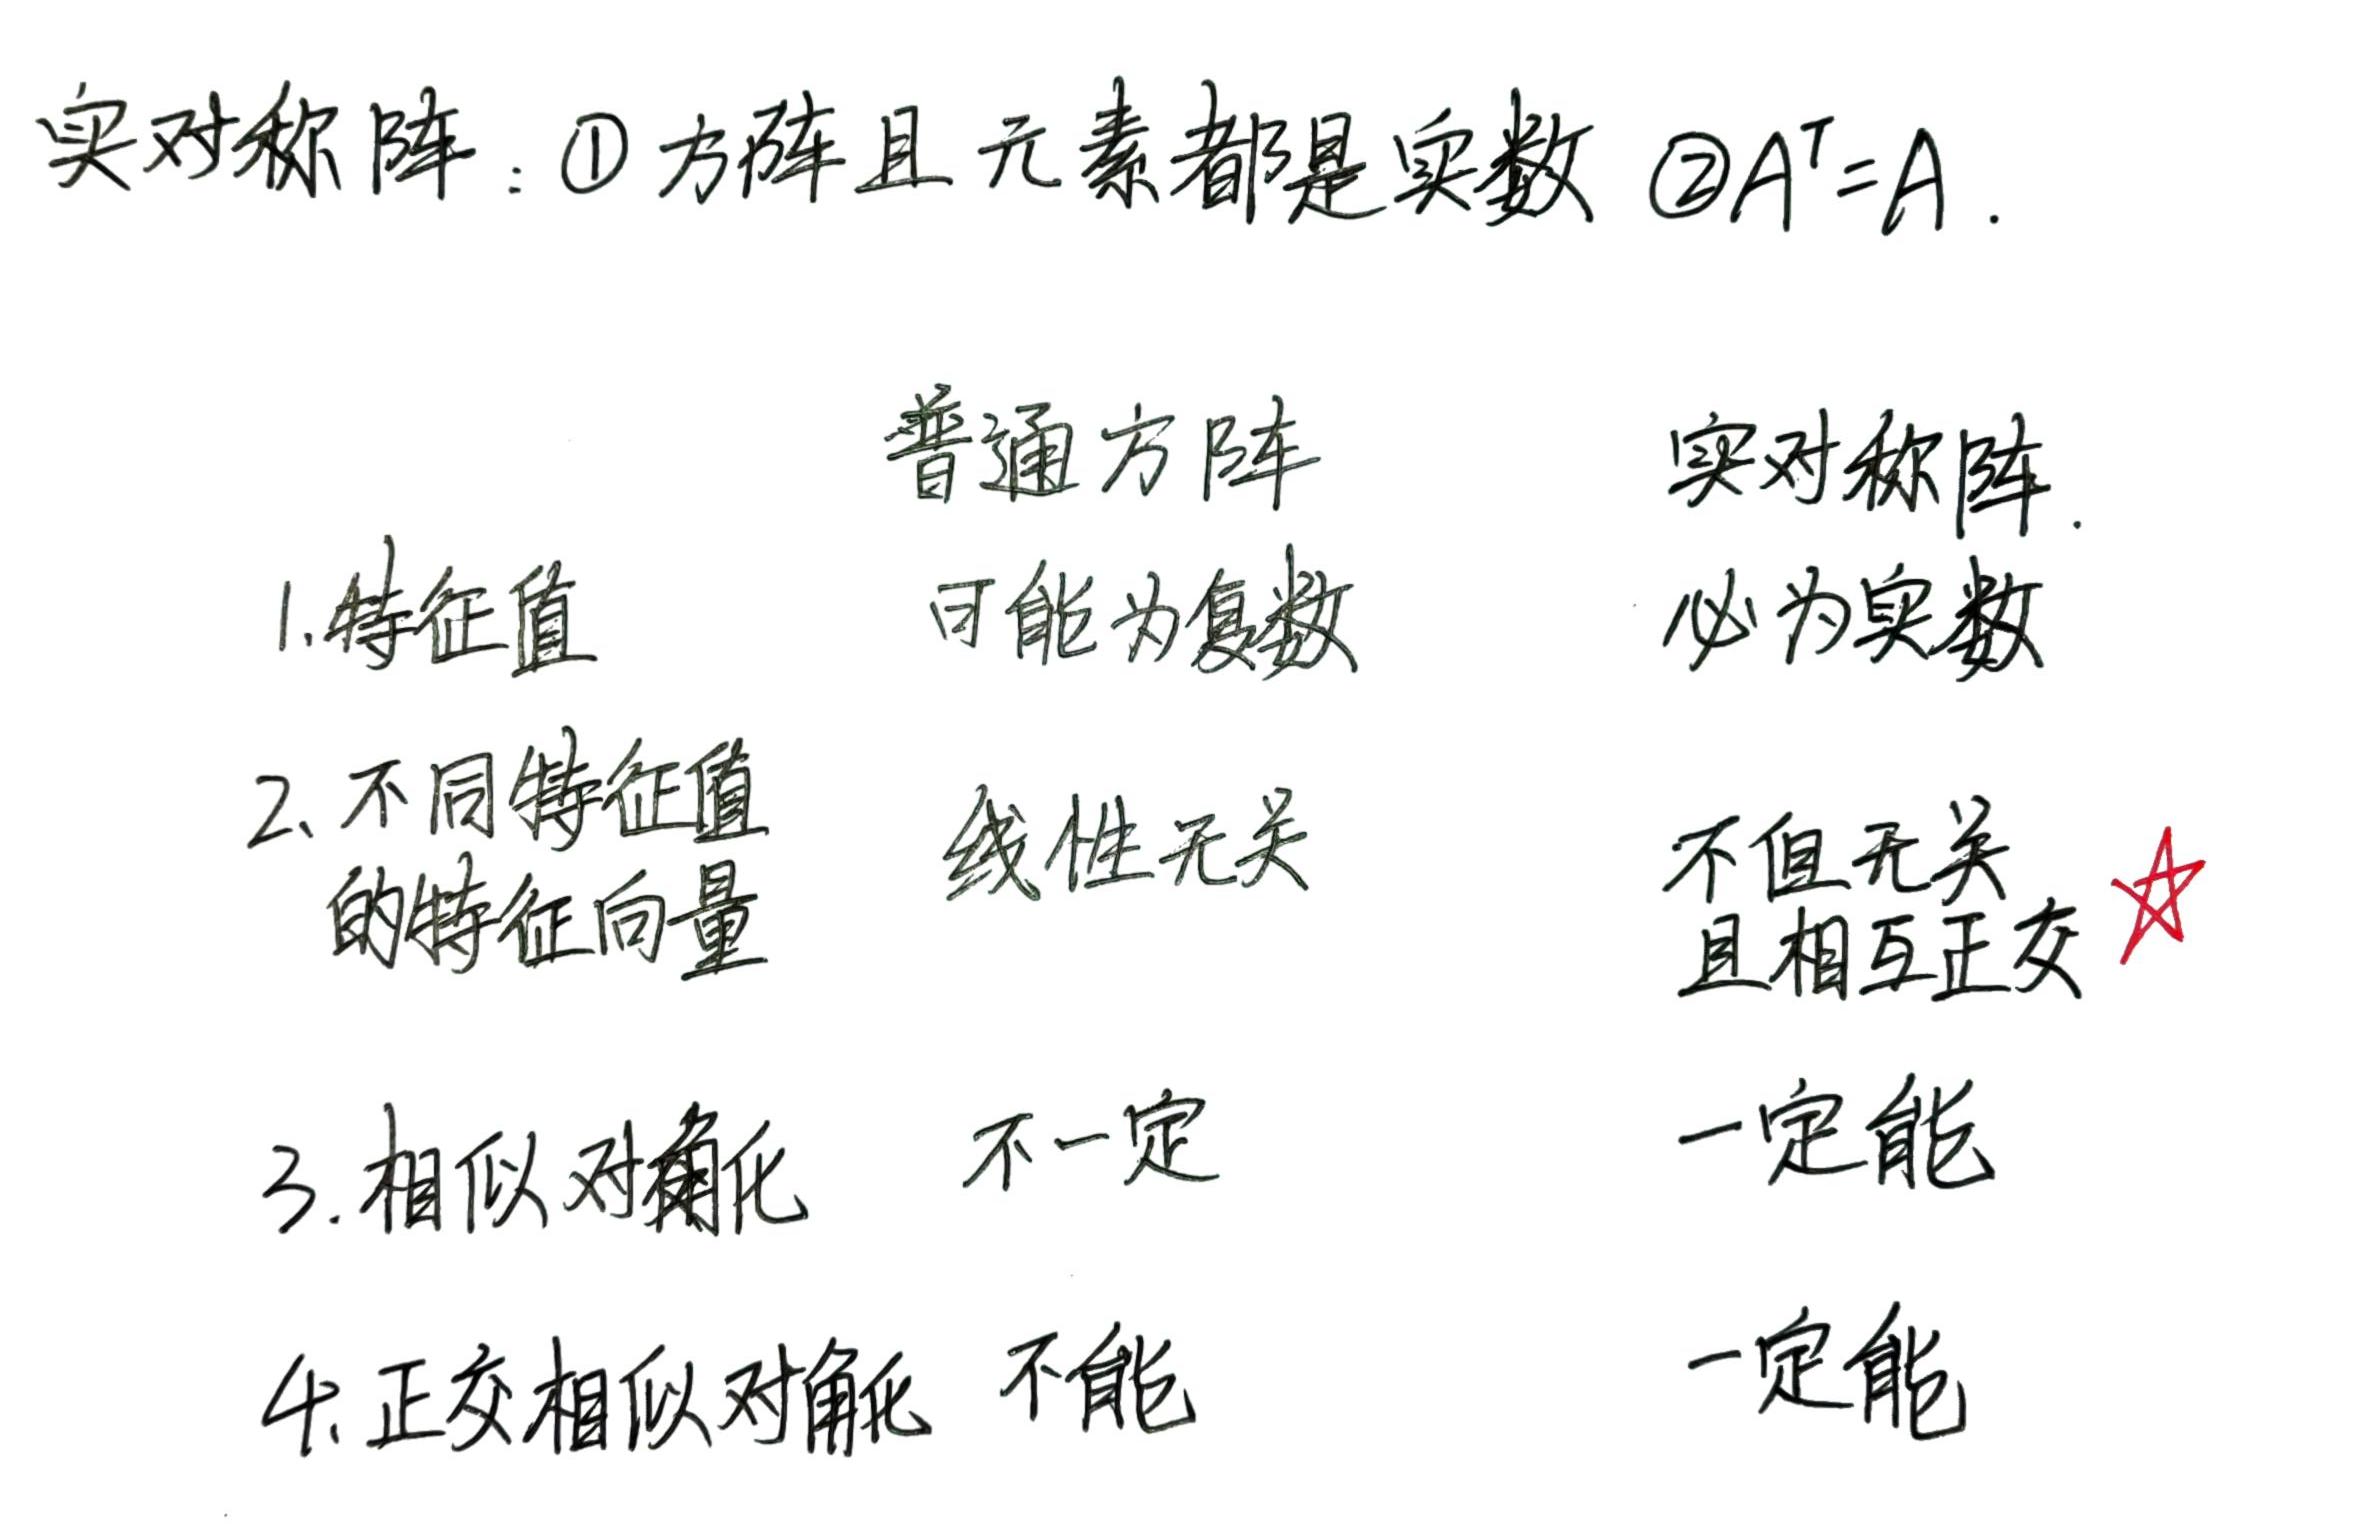 实对称阵：①方阵且元素都是实数 ②Aᵀ=A.
普通方阵 实对称阵.
1.特征值 可能为复数 必为实数
2、不同特征值
的特征向量 线性无关 不但无关
且相互正交
3.相似对角化 不一定 一定能
4.正交相似对角化 不能 一定能